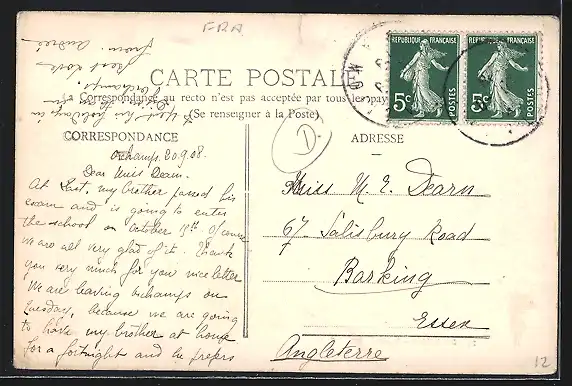 FRA
CARTE POSTALE
Correspondance au recto n'est pas acceptée par tous les pays
(Se renseigner à la Poste)
CORRESPONDANCE
Orchamps. 20.9.08.
Dear Miss Dearn.
At last, my brother passed his
exam and is going to enter
the school on October 15th. Of course
we are all very glad of it. Thank
you very much for your nice letter
We are leaving Orchamps on
Tuesday, because we are going
to have my brother at home
for a fortnight and he prefers
to spend his holidays in
Orchamps.
best love
from Andrée
D.
ADRESSE
Miss M. E. Dearn
67 Salisbury Road
Barking
Essex
Angleterre
REPUBLIQUE FRANÇAISE
5c
POSTES
REPUBLIQUE FRANÇAISE
5c
POSTES
12